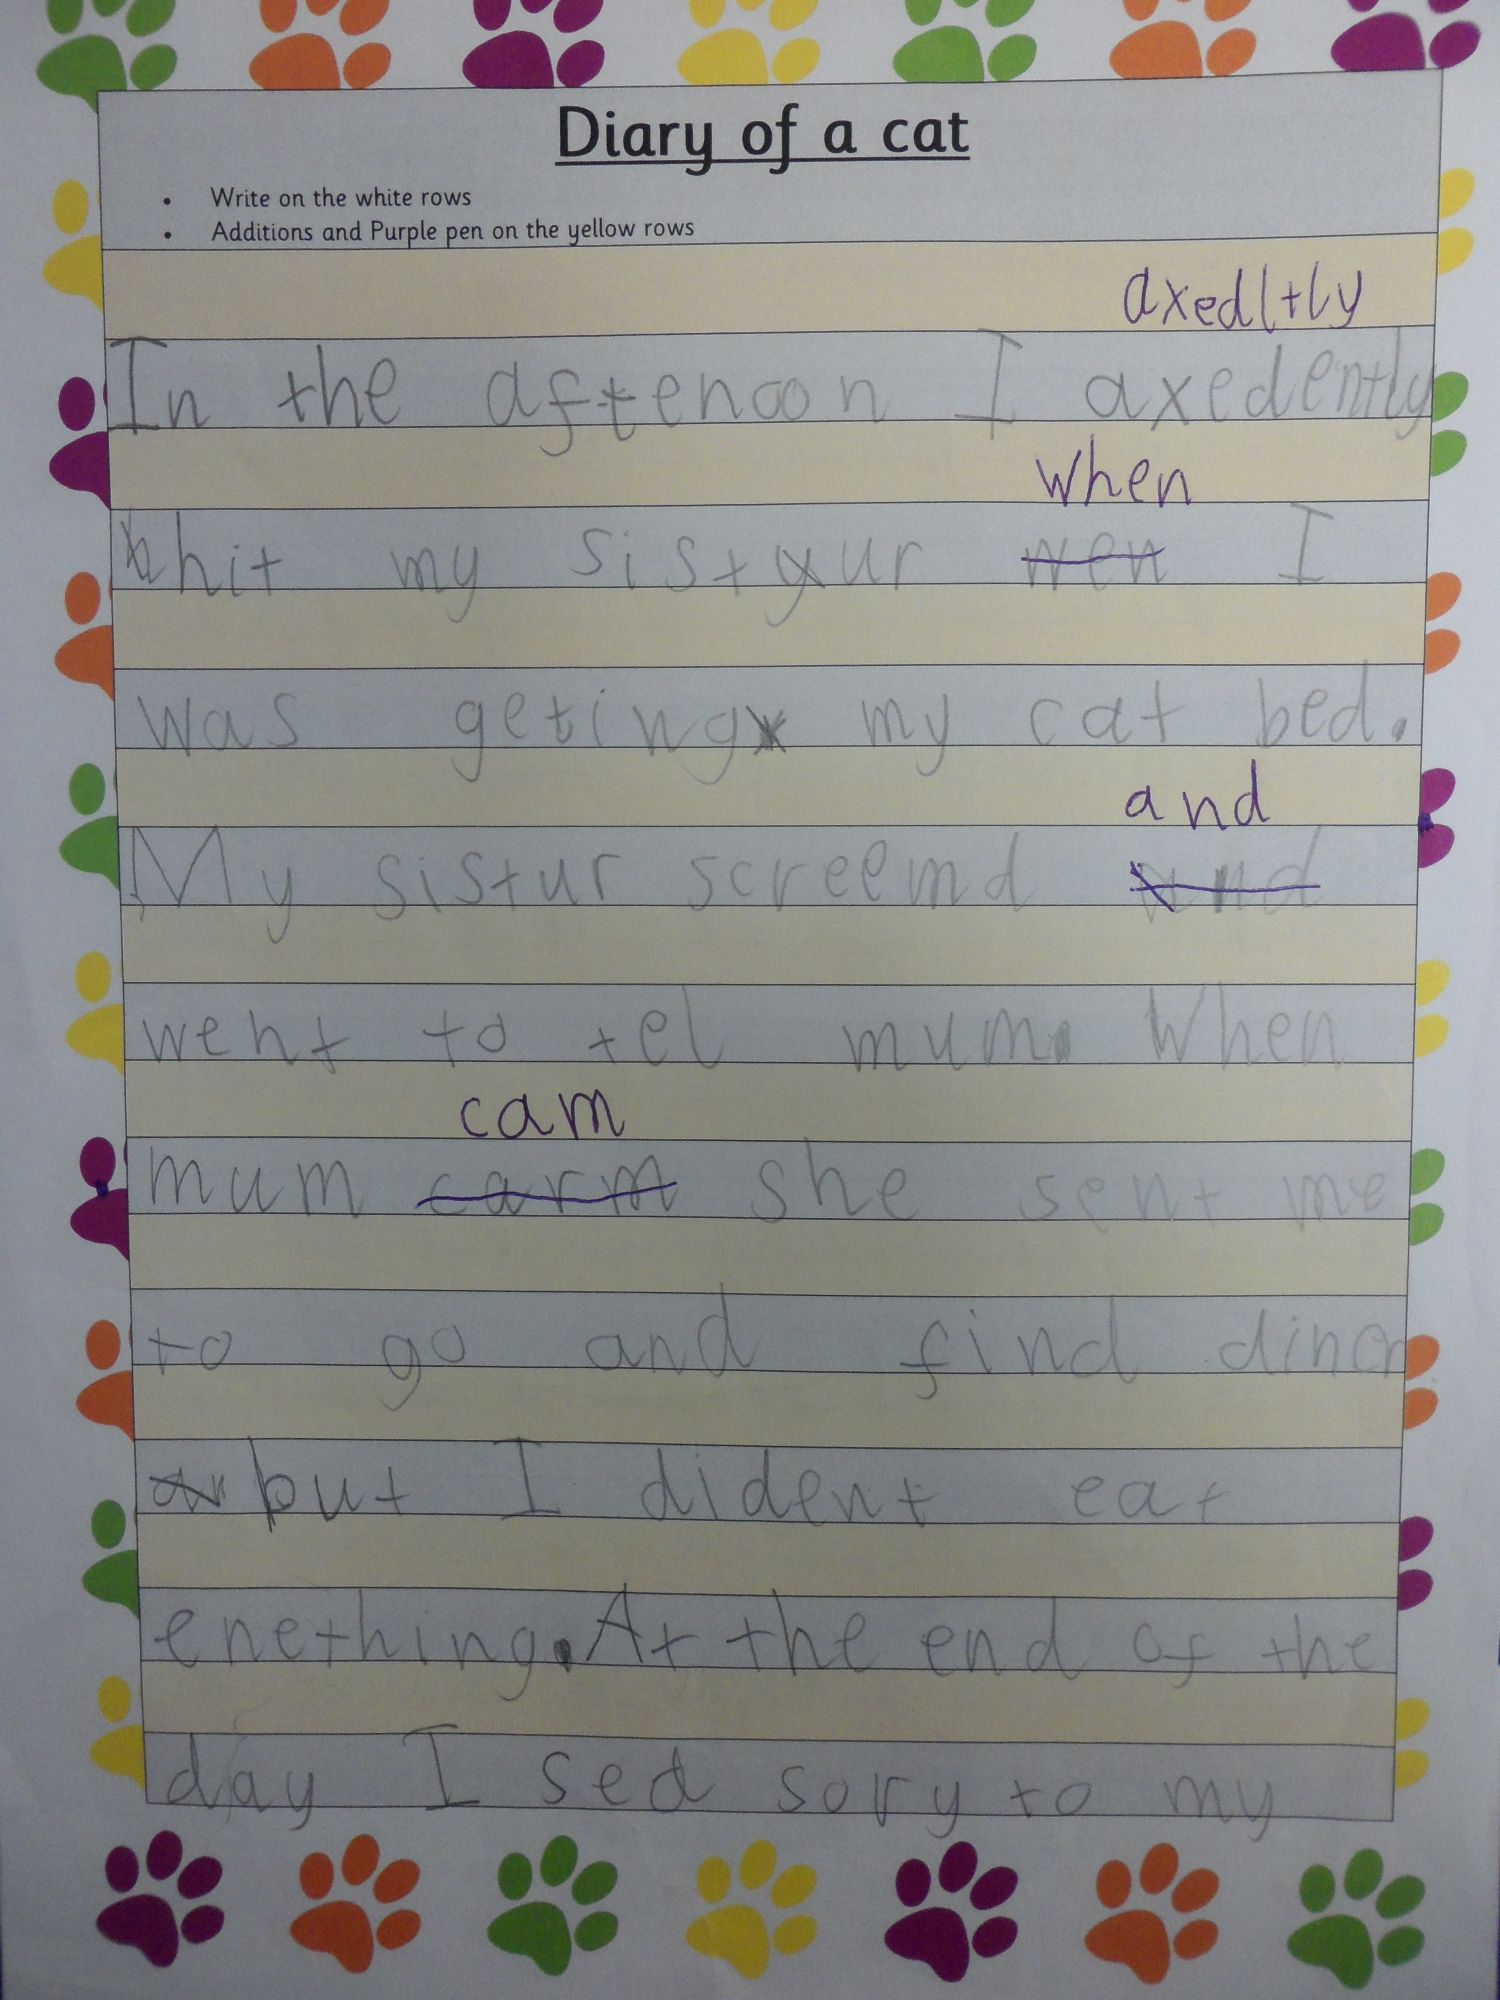 Diary of a cat
• Write on the white rows
• Additions and Purple pen on the yellow rows
axedltly
In the aftenoon I axedently
hit my sistur wen I
when
was geting my cat bed.
and
My sistur screemd and
went to tel mum. When
cam
mum carm she sent me
to go and find diner
but I dident eat
enething. At the end of the
day I sed sory to my